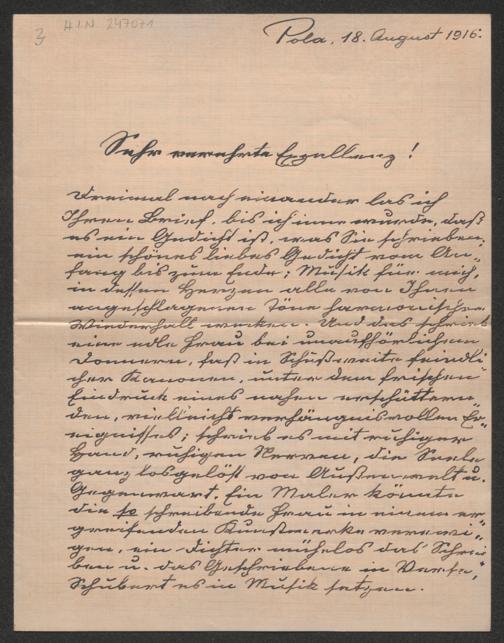 3
H.I.N. 247071
Pola, 18. August 1916.
Sehr verehrte Exzellenz!
Dreimal nach einander las ich
Ihren Brief, bis ich inne wurde, daß
es ein Gedicht ist, was Sie schrieben,
ein schönes liebes Gedicht vom An„
fang bis zum Ende; Musik für mich,
in dessen Herzen alle von Ihnen
angeschlagenen Töne harmonischen
Wiederhall wecken. Und das schrieb
eine edle Frau bei unaufhörlichem
Donnern, fast in Schußweite feindli„
cher Kanonen, unter dem frischen
Eindruck eines nahen erschüttern„
den, vielleicht verhängnisvollen Er„
eignisses; schrieb es mit ruhiger
Hand, ruhigen Nerven, die Seele
ganz losgelöst von Außenwelt u.
Gegenwart. Ein Maler könnte
die so schreibende Frau in einem er„
greifenden Kunstwerke verewi„
gen, ein Dichter mühelos das Schrei„
ben u. das Geschriebene in Verse,
Schubert es in Musik setzen.